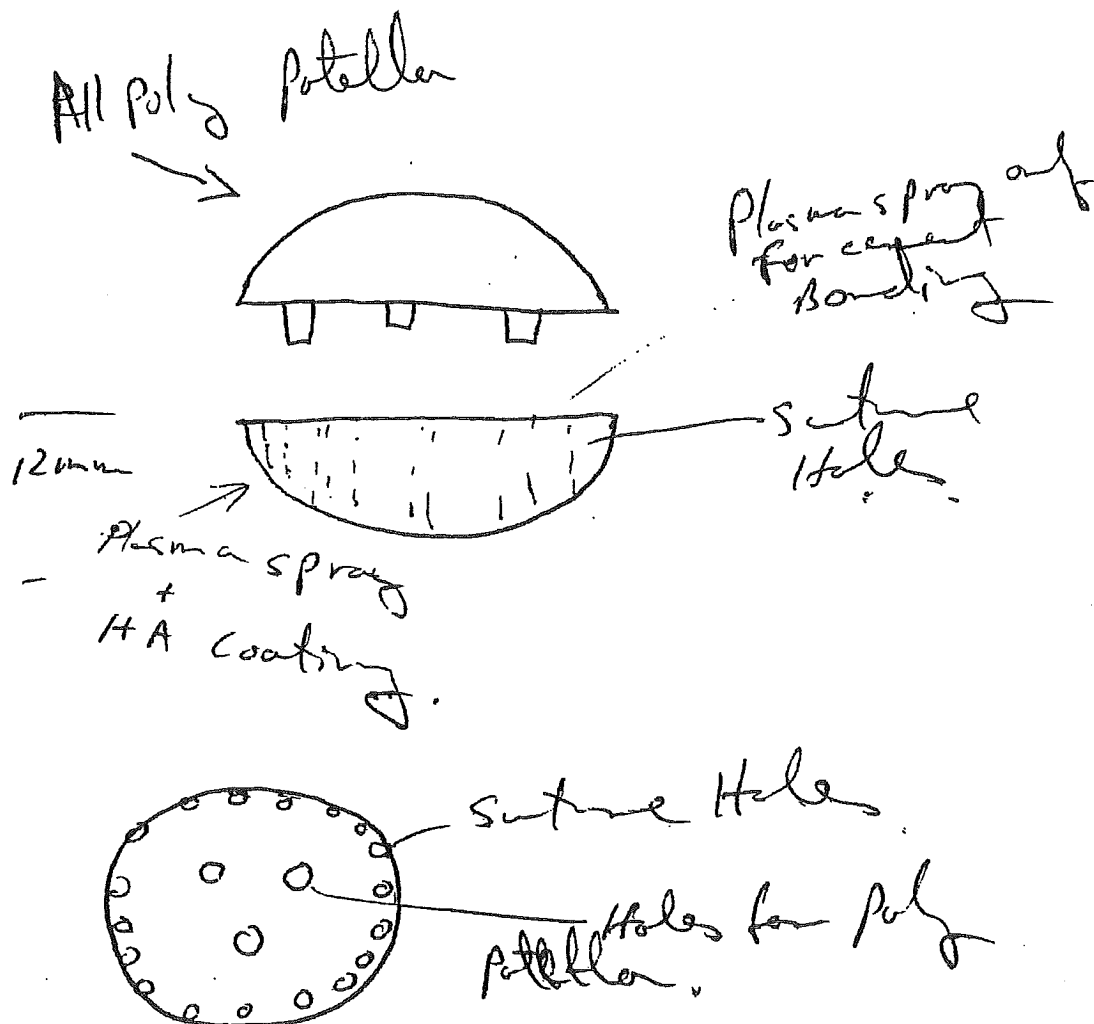 All Poly Patella
Plasma spray only
for cement
Bonding
Suture
Holes.
12mm
Plasma spray
+
HA coating.
Suture Holes.
Holes for Poly
Patella.